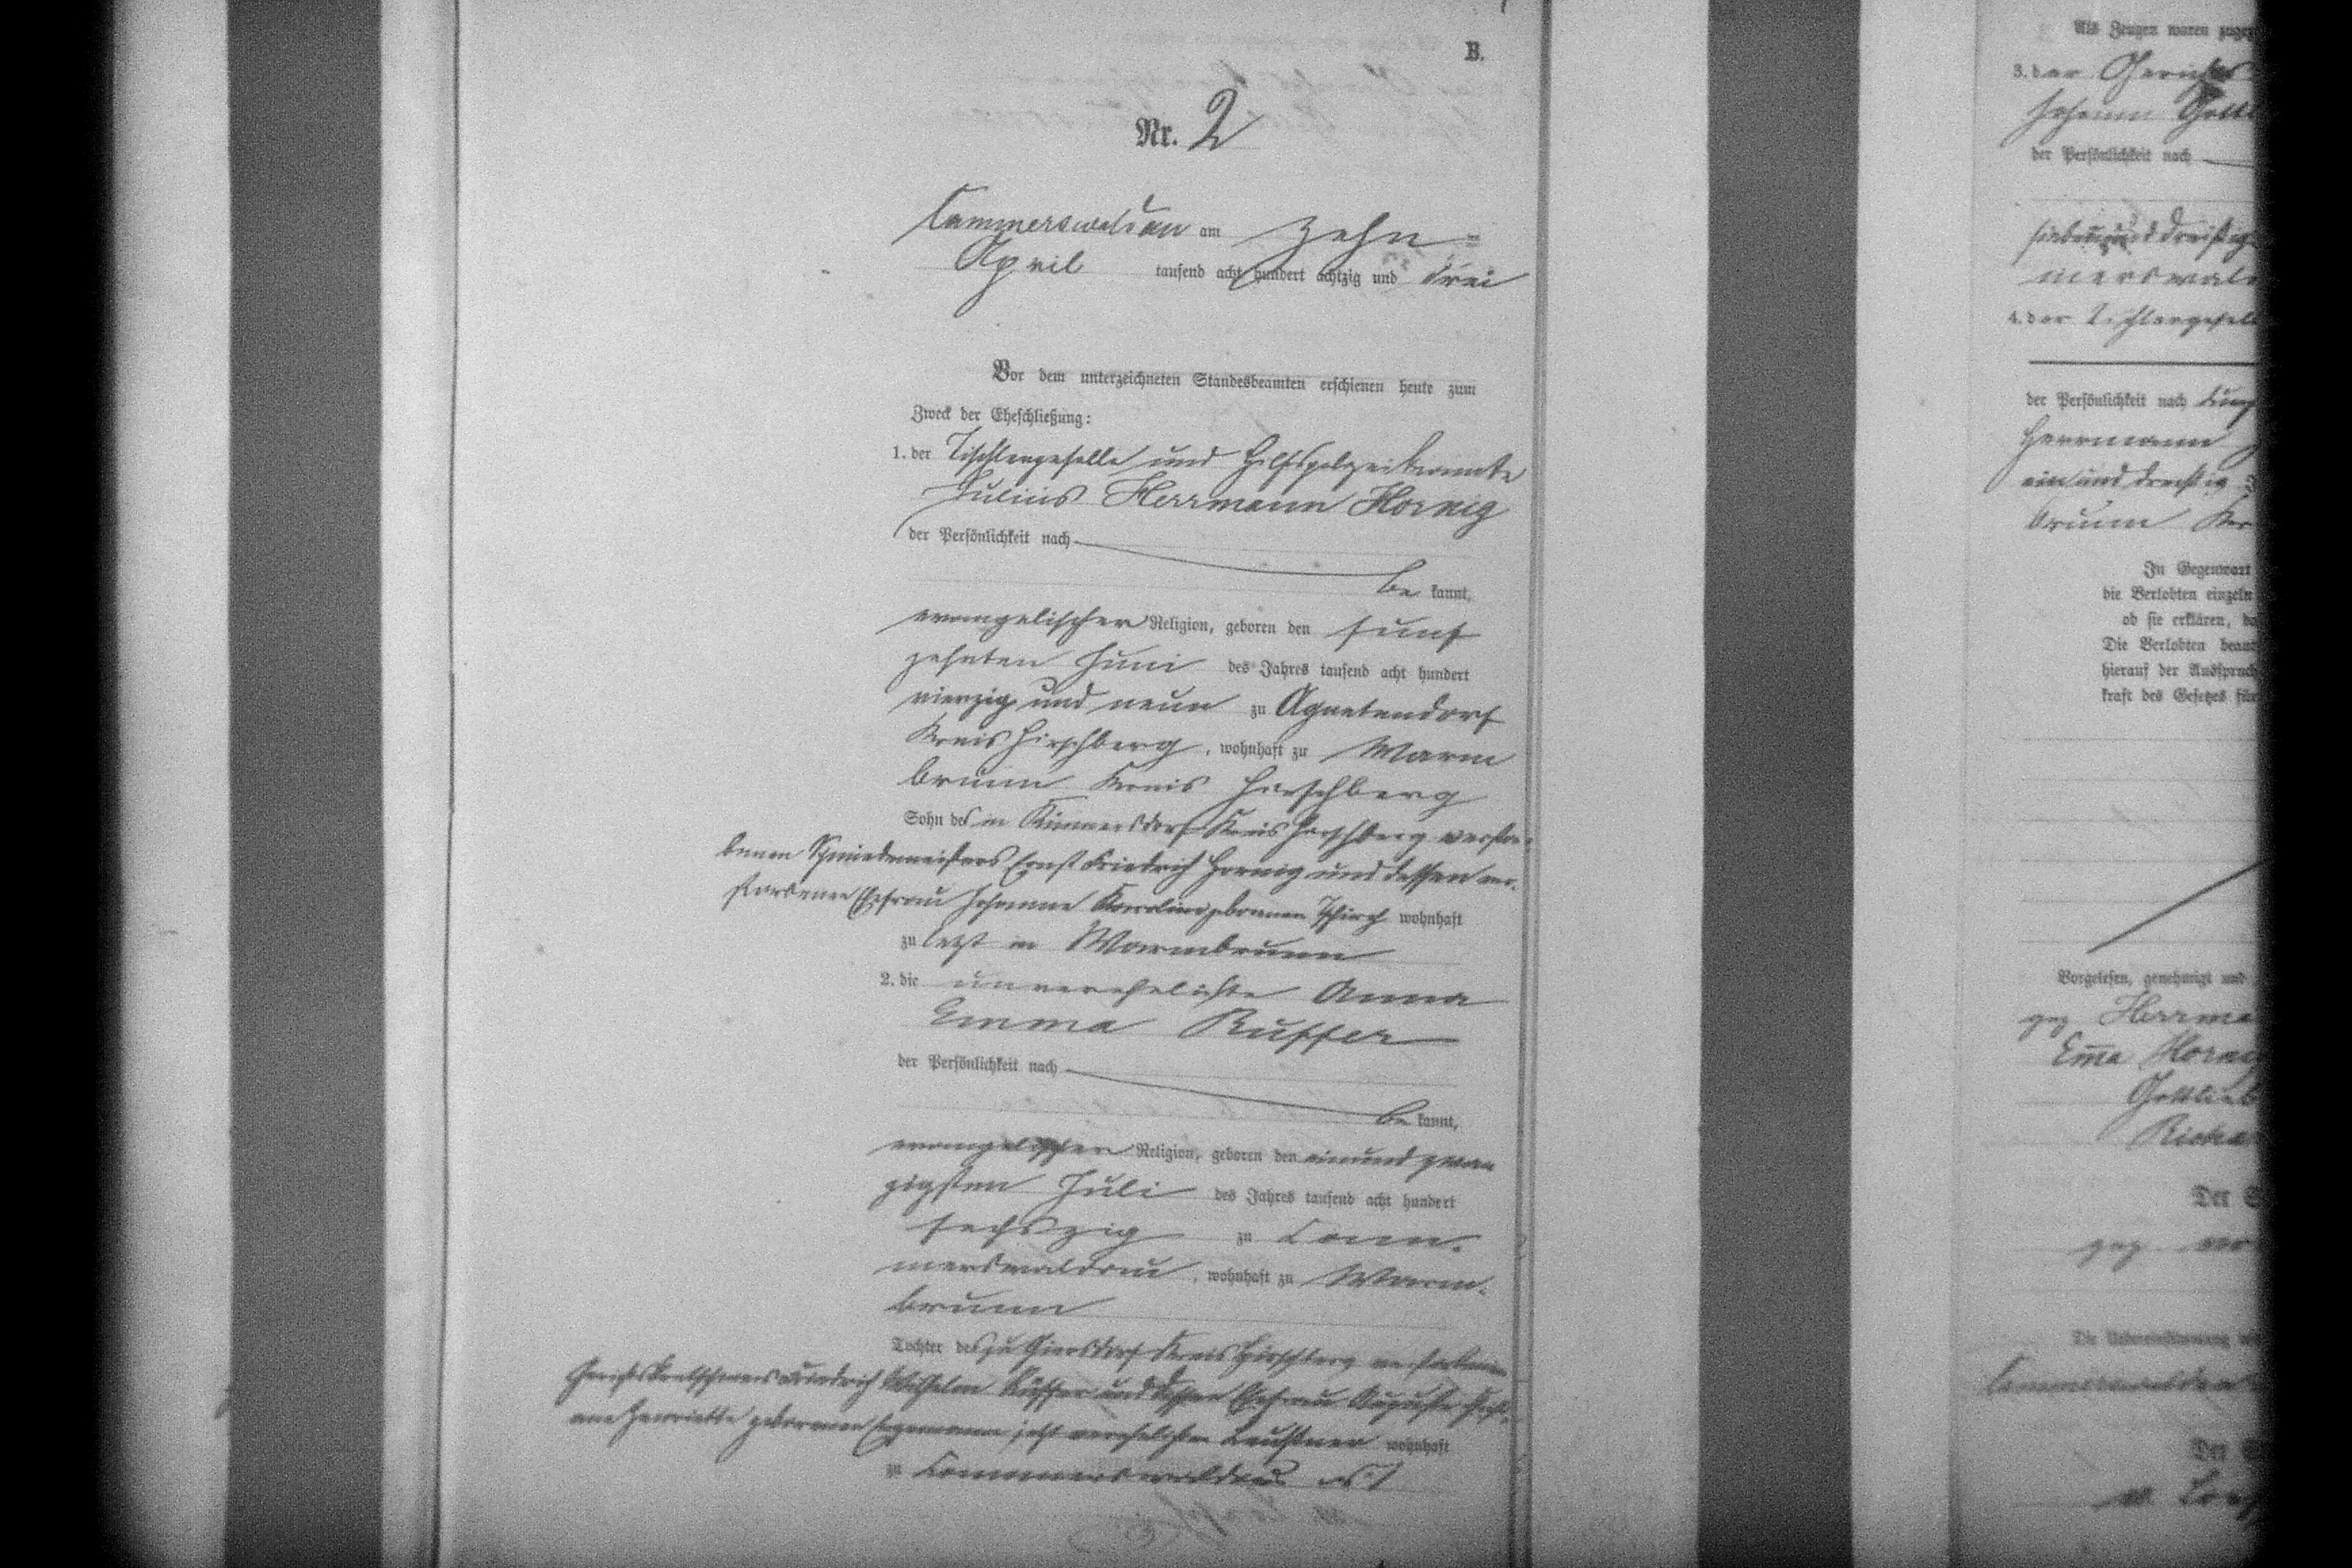 B.
Nr. 2
Cammerswaldau am Zehn-
April tausend acht hundert achtzig und drei
Vor dem unterzeichneten Standesbeamten erschienen heute zum
Zweck der Eheschließung:
1. der Tischlergeselle und Hilfspolizeibeamte
Julius Herrmann Hornig
der Persönlichkeit nach
be kannt,
evangelischer Religion, geboren den fünf
zehnten Juni des Jahres tausend acht hundert
vierzig und neun zu Agnetendorf
Kreis Hirschberg, wohnhaft zu Warm
brunn Kreis Hirschberg
Sohn des in Kunnersdorf Kreis Hirschberg verstor-
benen Schmiedemeisters Ernst Friedrich Hornig und dessen ver-
storbenen Ehefrau Johanne Karoline geborenen wohnhaft
zu letzt in Warmbrunn
2. die unverehelichte Anna
Emma Ruffer
der Persönlichkeit nach
be kannt,
evangelischer Religion, geboren den einundzwan
zigsten Juli des Jahres tausend acht hundert
sechszig zu Cam-
merswaldau, wohnhaft zu Warm-
brunn
Tochter des zu Giersdorf Kreis Hirschberg verstorbenen
Gerichtskretschmers Friedrich Wilhelm Rüffer und dessen Ehefrau Auguste
Henriette geborenen jetzt verehelichten wohnhaft
zu Cammerswaldau
Als Zeugen waren zugez
3. der Gerichts
Johann Gottl
der Persönlichkeit nach
siebenunddreißig
merswald
4. der Tischlergesell
der Persönlichkeit nach
Herrmann
einunddreißig
brunn
In Gegenwart
die Verlobten einzeln
ob sie erklären, da
Die Verlobten beant
hierauf der Ausspruch
kraft des Gesetzes für
Vorgelesen, genehmigt und
gez. Herrma
Ema Horni
Gottlieb
Richa
Der S
gez.
Die Uebereinstimmung mi
Cammerswaldau
Der S